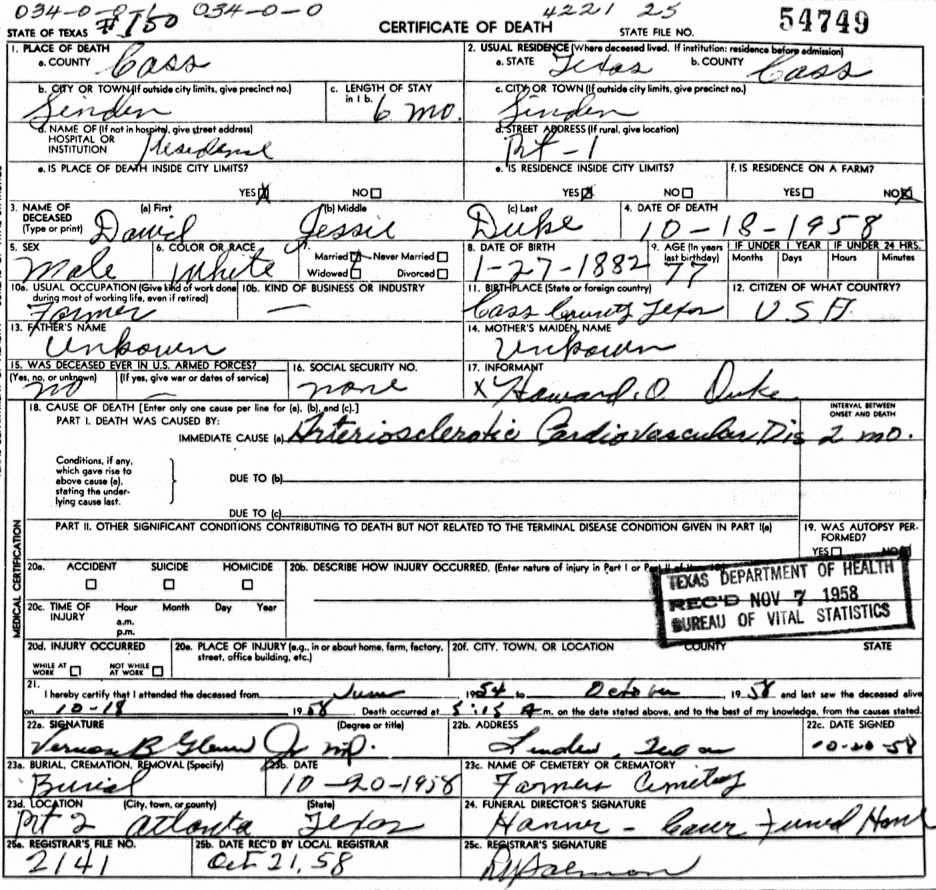 034-0-0-1 034-0-0 4221 25
STATE OF TEXAS #150 CERTIFICATE OF DEATH STATE FILE NO. 54749
1. PLACE OF DEATH
a. COUNTY Cass
2. USUAL RESIDENCE (Where deceased lived. If institution: residence before admission)
a. STATE Texas b. COUNTY Cass
b. CITY OR TOWN (If outside city limits, give precinct no.)
Linden
c. LENGTH OF STAY
in 1 b. 6 mo.
c. CITY OR TOWN (If outside city limits, give precinct no.)
Linden
d. NAME OF (If not in hospital, give street address)
HOSPITAL OR
INSTITUTION Residence
d. STREET ADDRESS (If rural, give location)
Rt-1
e. IS PLACE OF DEATH INSIDE CITY LIMITS?
YES NO
e. IS RESIDENCE INSIDE CITY LIMITS?
YES NO
f. IS RESIDENCE ON A FARM?
YES NO
3. NAME OF
DECEASED
(Type or print)
(a) First David
(b) Middle Jessie
(c) Last Duke
4. DATE OF DEATH
10-18-1958
5. SEX
Male
6. COLOR OR RACE
White
7.
Married Never Married
Widowed Divorced
8. DATE OF BIRTH
1-27-1882
9. AGE (In years
last birthday)
77
IF UNDER 1 YEAR
Months Days
IF UNDER 24 HRS.
Hours Minutes
10a. USUAL OCCUPATION (Give kind of work done
during most of working life, even if retired)
Farmer
10b. KIND OF BUSINESS OR INDUSTRY
—
11. BIRTHPLACE (State or foreign country)
Cass County Texas
12. CITIZEN OF WHAT COUNTRY?
U.S.A.
13. FATHER'S NAME
Unkown
14. MOTHER'S MAIDEN NAME
Unkown
15. WAS DECEASED EVER IN U.S. ARMED FORCES?
(Yes, no, or unknown) (If yes, give war or dates of service)
no —
16. SOCIAL SECURITY NO.
none
17. INFORMANT
X Howard O. Duke
18. CAUSE OF DEATH [Enter only one cause per line for (a), (b), and (c).]
INTERVAL BETWEEN
ONSET AND DEATH
PART I. DEATH WAS CAUSED BY:
IMMEDIATE CAUSE (a) Arteriosclerotic Cardiovascular Dis 2 mo.
Conditions, if any,
which gave rise to
above cause (a),
stating the under-
lying cause last.
DUE TO (b)
DUE TO (c)
PART II. OTHER SIGNIFICANT CONDITIONS CONTRIBUTING TO DEATH BUT NOT RELATED TO THE TERMINAL DISEASE CONDITION GIVEN IN PART I(a)
19. WAS AUTOPSY PER-
FORMED?
YES NO
MEDICAL CERTIFICATION
20a. ACCIDENT SUICIDE HOMICIDE
20b. DESCRIBE HOW INJURY OCCURRED. (Enter nature of injury in Part I or Part II of
TEXAS DEPARTMENT OF HEALTH
REC'D NOV 7 1958
BUREAU OF VITAL STATISTICS
20c. TIME OF
INJURY
Hour Month Day Year
a.m.
p.m.
20d. INJURY OCCURRED
WHILE AT
WORK
NOT WHILE
AT WORK
20e. PLACE OF INJURY (e.g., in or about home, farm, factory,
street, office building, etc.)
20f. CITY, TOWN, OR LOCATION COUNTY STATE
21.
I hereby certify that I attended the deceased from June 1954 to October 1958 and last saw the deceased alive
on 10-18 1958 Death occurred at 5:15 A m. on the date stated above, and to the best of my knowledge, from the causes stated.
22a. SIGNATURE (Degree or title)
Vernon B Glenn Jr MD.
22b. ADDRESS
Linden, Texas
22c. DATE SIGNED
10-20-58
23a. BURIAL, CREMATION, REMOVAL (Specify)
Burial
23b. DATE
10-20-1958
23c. NAME OF CEMETERY OR CREMATORY
Farmers Cemetery
23d. LOCATION (City, town, or county) (State)
Rt 2 Atlanta Texas
24. FUNERAL DIRECTOR'S SIGNATURE
Hanner - Funeral Home
25a. REGISTRAR'S FILE NO.
2141
25b. DATE REC'D BY LOCAL REGISTRAR
Oct 21, 58
25c. REGISTRAR'S SIGNATURE